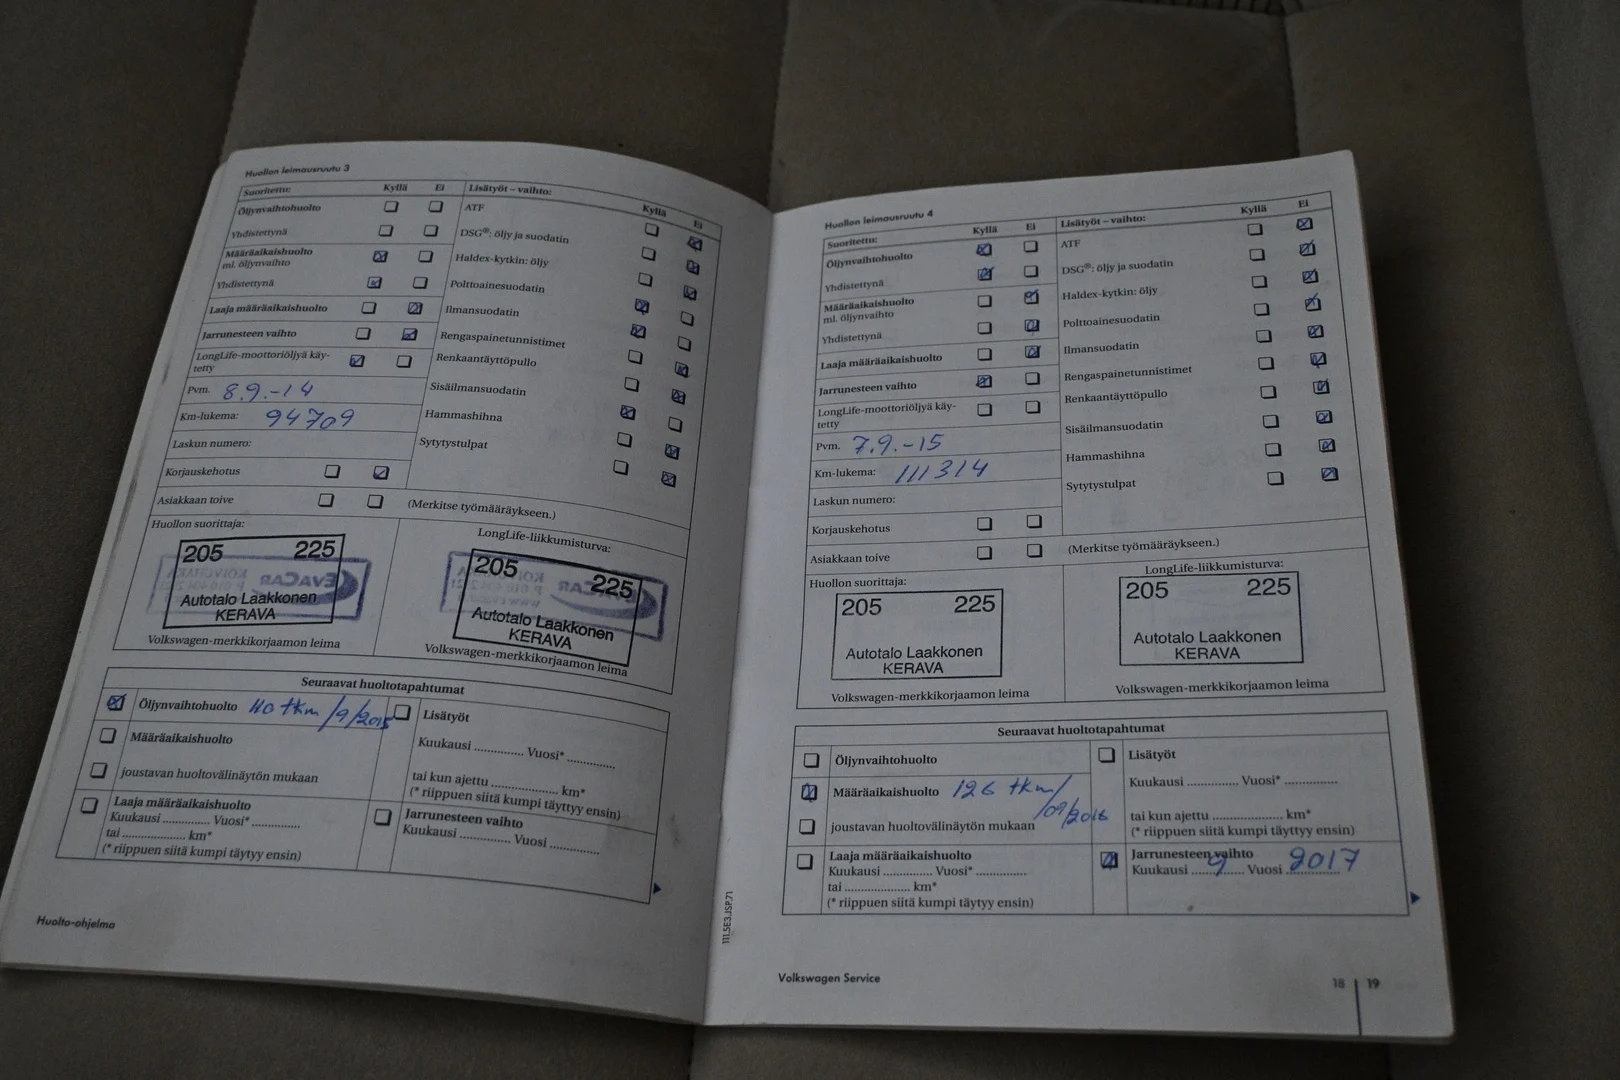 Huollon leimausruutu 3
Suoritettu: Kyllä Ei
Öljynvaihtohuolto
Yhdistettynä
Määräaikaishuolto
ml. öljynvaihto
Yhdistettynä
Laaja määräaikaishuolto
Jarrunesteen vaihto
LongLife-moottoriöljyä käy-
tetty
Pvm. 8.9.-14
Km-lukema: 94709
Laskun numero:
Korjauskehotus
Asiakkaan toive
(Merkitse työmääräykseen.)
Lisätyöt – vaihto: Kyllä Ei
ATF
DSG®: öljy ja suodatin
Haldex-kytkin: öljy
Polttoainesuodatin
Ilmansuodatin
Rengaspainetunnistimet
Renkaantäyttöpullo
Sisäilmansuodatin
Hammashihna
Sytytystulpat
Huollon suorittaja:
205 225
Autotalo Laakkonen
KERAVA
Volkswagen-merkkikorjaamon leima
LongLife-liikkumisturva:
205 225
Autotalo Laakkonen
KERAVA
Volkswagen-merkkikorjaamon leima
Seuraavat huoltotapahtumat
Öljynvaihtohuolto 110 tkm /9/2015
Määräaikaishuolto
joustavan huoltovälinäytön mukaan
Laaja määräaikaishuolto
Kuukausi .............. Vuosi* ..............
tai .................... km*
(* riippuen siitä kumpi täytyy ensin)
Lisätyöt
Kuukausi .............. Vuosi* ..............
tai kun ajettu .................... km*
(* riippuen siitä kumpi täyttyy ensin)
Jarrunesteen vaihto
Kuukausi .............. Vuosi ..............
Huolto-ohjelma
111.5E3.JSP.71
Huollon leimausruutu 4
Suoritettu: Kyllä Ei
Öljynvaihtohuolto
Yhdistettynä
Määräaikaishuolto
ml. öljynvaihto
Yhdistettynä
Laaja määräaikaishuolto
Jarrunesteen vaihto
LongLife-moottoriöljyä käy-
tetty
Pvm. 7.9.-15
Km-lukema: 111314
Laskun numero:
Korjauskehotus
Asiakkaan toive
(Merkitse työmääräykseen.)
Lisätyöt – vaihto: Kyllä Ei
ATF
DSG®: öljy ja suodatin
Haldex-kytkin: öljy
Polttoainesuodatin
Ilmansuodatin
Rengaspainetunnistimet
Renkaantäyttöpullo
Sisäilmansuodatin
Hammashihna
Sytytystulpat
Huollon suorittaja:
205 225
Autotalo Laakkonen
KERAVA
Volkswagen-merkkikorjaamon leima
LongLife-liikkumisturva:
205 225
Autotalo Laakkonen
KERAVA
Volkswagen-merkkikorjaamon leima
Seuraavat huoltotapahtumat
Öljynvaihtohuolto
Määräaikaishuolto 126 tkm/
/09/2016
joustavan huoltovälinäytön mukaan
Laaja määräaikaishuolto
Kuukausi .............. Vuosi* ..............
tai .................... km*
(* riippuen siitä kumpi täytyy ensin)
Lisätyöt
Kuukausi .............. Vuosi* ..............
tai kun ajettu .................... km*
(* riippuen siitä kumpi täyttyy ensin)
Jarrunesteen vaihto
Kuukausi 9 Vuosi 2017
Volkswagen Service
18 19